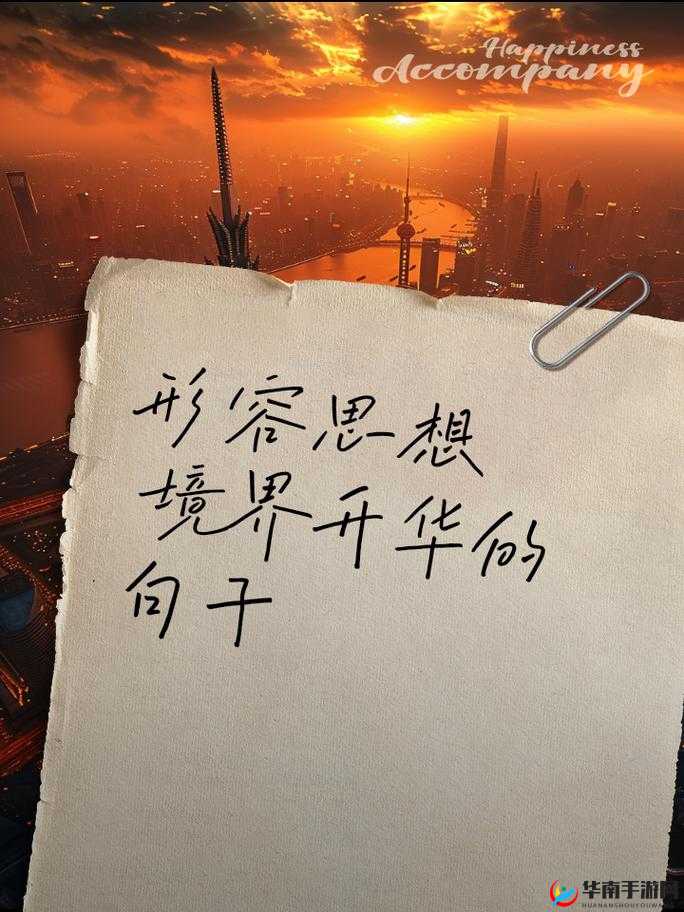 Happiness
Accompany
形容思想
境界升华的
句子
华南手游网